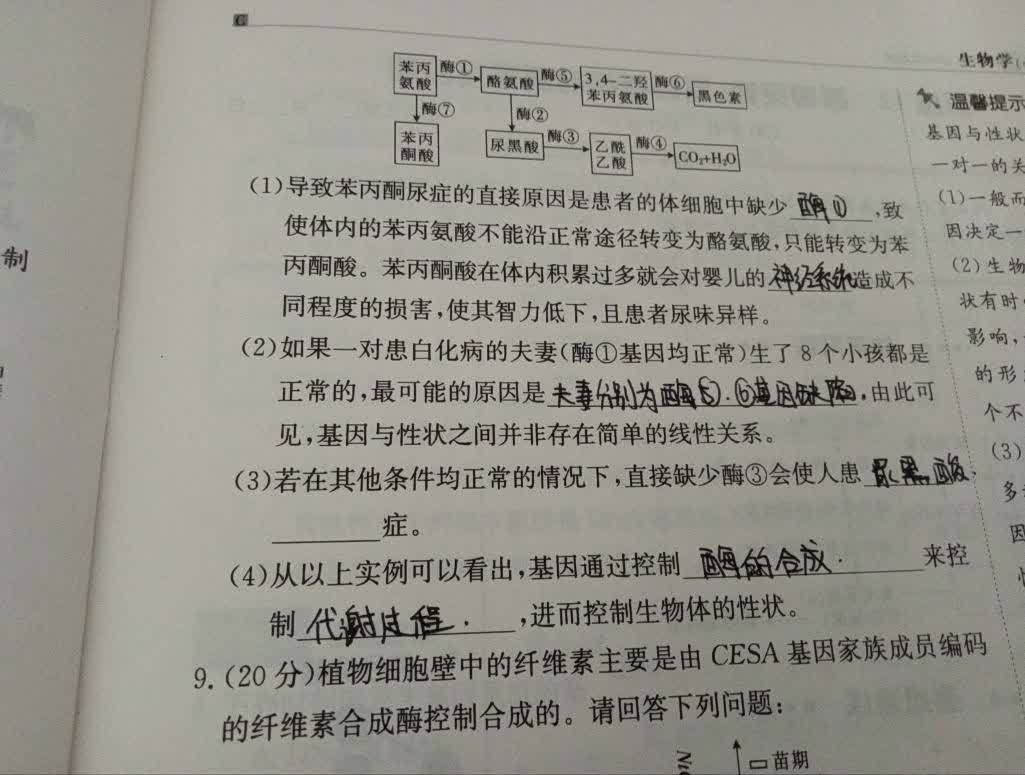 C
生物学(
苯丙氨酸 酶① 酪氨酸 酶⑤ 3,4-二羟苯丙氨酸 酶⑥ 黑色素
酶⑦ 酶②
苯丙酮酸 尿黑酸 酶③ 乙酰乙酸 酶④ CO₂+H₂O
(1)导致苯丙酮尿症的直接原因是患者的体细胞中缺少 酶① ,致
使体内的苯丙氨酸不能沿正常途径转变为酪氨酸,只能转变为苯
丙酮酸。苯丙酮酸在体内积累过多就会对婴儿的 神经系统 造成不
同程度的损害,使其智力低下,且患者尿味异样。
(2)如果一对患白化病的夫妻(酶①基因均正常)生了8个小孩都是
正常的,最可能的原因是 夫妻分别为酶⑤.⑥基因缺陷 ,由此可
见,基因与性状之间并非存在简单的线性关系。
(3)若在其他条件均正常的情况下,直接缺少酶③会使人患 尿黑酸
症。
(4)从以上实例可以看出,基因通过控制 酶的合成. 来控
制 代谢过程. ,进而控制生物体的性状。
9.(20分)植物细胞壁中的纤维素主要是由CESA基因家族成员编码
的纤维素合成酶控制合成的。请回答下列问题:
苗期
温馨提示
基因与性状
一对一的关
(1)一般而
因决定一
(2)生物
状有时
影响,
的形
个不
(3)
多
因
制